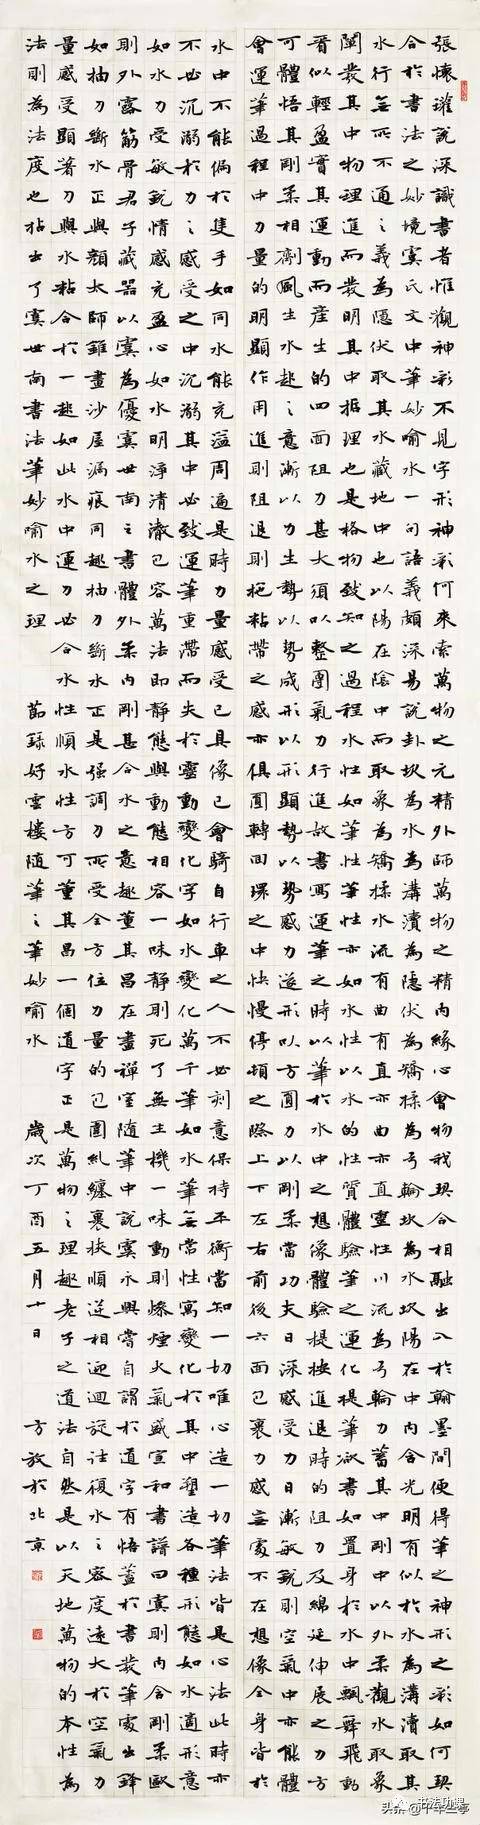 張懷瓘說深識書者惟觀神彩不見字形神彩何來索萬物之元精外師萬物之精內緣心會物我契合相融出入於翰墨間便得筆之神形之彩如何契
合於書法之妙境虞氏文中筆妙喻水一句語義頗深易說卦坎為水為溝瀆為隱伏為矯揉為弓輪坎為水坎陽在中內含光明有似於水為溝瀆取其
水行無所不通之義為隱伏取其水藏地中也以陽在陰中而取象為矯揉水流有曲有直亦曲亦直靈性川流為弓輪力蓄其中剛中以外柔觀水取象
闡發其中物理進而發明其中据理也是格物致知之過程水性如筆性筆性亦如水性以水的性質體驗筆之運化提筆欲書如置身於水中飄舞飛動
看似輕盈實其運動而產生的四面阻力甚大須以整團氣力行進故書寫運筆之時以筆於水中之想像體驗提按進退時的阻力及綿延伸展之力方
可體悟其剛柔相劑風生水起之意漸以力生勢以勢成形以形顯勢以勢感力造形以方圓力以剛柔當功夫日深感受力日漸敏銳則空氣中亦能體
會運筆過程中力量的明顯作用進則阻退則拖粘帶之感亦俱圓轉回環之中快慢停頓之際上下左右前後六面包裹力感無處不在想像全身皆於
水中不能偏於隻手如同水能充溢周遍是時力量感受已具像已會騎自行車之人不必刻意保持平衡當知一切唯心造一切筆法皆是心法此時亦
不必沉溺於力之感受之中沉溺其中必致運筆重滯而失於靈動變化字如水變化萬千筆如水筆無常性寓變化於其中塑造各種形態如水適形意
如水力受敏銳情感充盈心如水明淨清澈包容萬法即靜態與動態相容一味靜則死了無生機一味動則燥煙火氣盛宣和書譜曰虞則內含剛柔歐
則外露筋骨君子藏器以虞為優虞世南之書體外柔內剛甚合水之意趣董其昌在畫禪室隨筆中說虞永興嘗自謂於道字有悟蓋於書發筆處出鋒
如抽刀斷水正與顏太師錐畫沙屋漏痕同趣抽刀斷水正是強調力所受全方位力量的包圍糾纏裹挾順逆相迎迴旋往復水之容度遠大於空氣力
量感受顯著刀與水粘合於一起如此水中運力必合水性順水性方可董其昌一個道字正是萬物之理趣老子之道法自然是以天地萬物的本性為
法則為法度也拈出了虞世南書法筆妙喻水之理 節錄好雲樓隨筆之筆妙喻水 歲次丁酉五月十日 方放於北京
书法功课
头条@千年兰亭